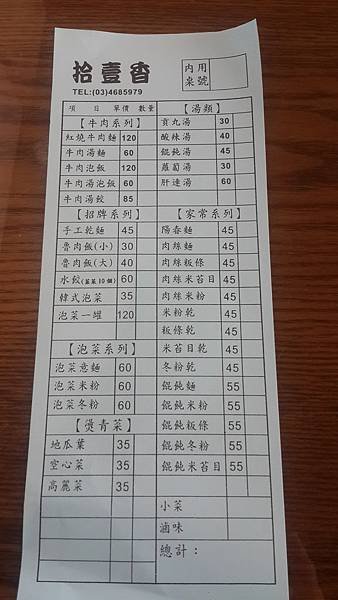 拾壹香
TEL:(03)4685979
內用桌號
項 目 單價 數量
【牛肉系列】
紅燒牛肉麵 120
牛肉湯麵 60
牛肉泡飯 120
牛肉湯泡飯 60
牛肉湯餃 85
【招牌系列】
手工乾麵 45
魯肉飯(小) 30
魯肉飯(大) 40
水餃(韮菜10個) 60
韓式泡菜 35
泡菜一罐 120
【泡菜系列】
泡菜意麵 60
泡菜米粉 60
泡菜冬粉 60
【燙青菜】
地瓜葉 35
空心菜 35
高麗菜 35
【湯類】
貢丸湯 30
酸辣湯 40
餛飩湯 45
蘿蔔湯 30
肝連湯 60
【家常系列】
陽春麵 45
肉絲麵 45
肉絲粄條 45
肉絲米苔目 45
肉絲米粉 45
米粉乾 45
粄條乾 45
米苔目乾 45
冬粉乾 45
餛飩麵 55
餛飩米粉 55
餛飩粄條 55
餛飩冬粉 55
餛飩米苔目 55
小菜
滷味
總計：